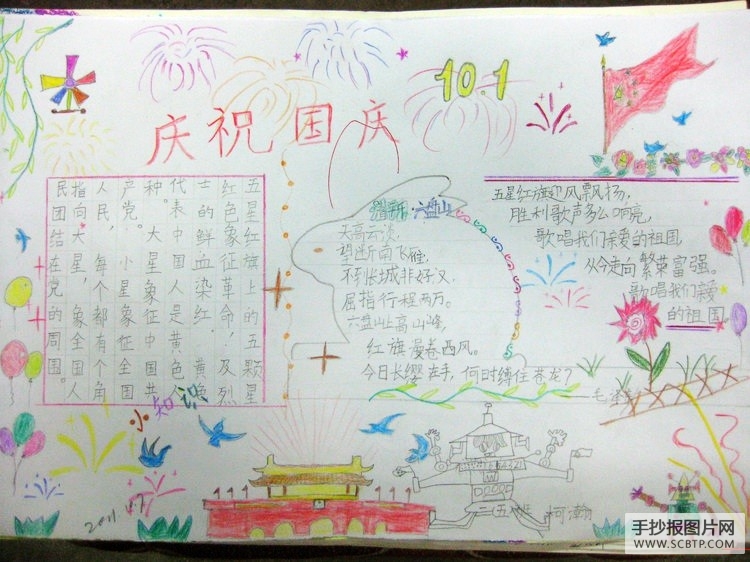 10.1
庆祝国庆
五星红旗上的五颗星
红色象征革命！及烈
士的鲜血染红，黄色
代表中国人是黄色
种。大星象征中国共
产党。小星象征全国
人民，每个都有个角
指向大星，象全国人
民团结在党的周围。
小知识
六盘山
天高云淡，
望断南飞雁。
不到长城非好汉，
屈指行程两万。
六盘山上高山峰，
红旗漫卷西风。
今日长缨在手，何时缚住苍龙？
五星红旗迎风飘扬，
胜利歌声多么响亮，
歌唱我们亲爱的祖国，
从今走向繁荣富强。
歌唱我们亲爱
的祖国，
2011
二(五)班 柯瀚
手抄报图片网
WWW.SCBTP.COM